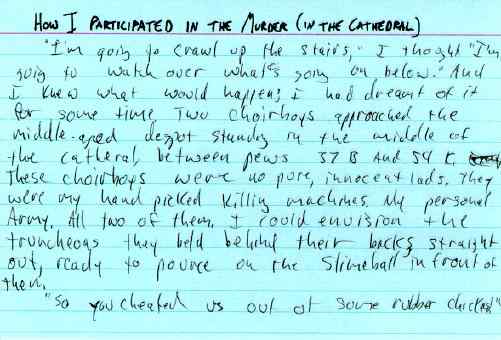 HOW I PARTICIPATED IN THE MURDER (IN THE CATHEDRAL)
"I'm going to crawl up the stairs," I thought "I'm
going to watch over what's going on below." And
I knew what would happen; I had dreamt of it
for some time. Two choirboys approached the
middle-aged despot standing in the middle of
the cathedral, between pews 37 B and 54 K.
These choirboys were no pure, innocent lads. They
were my hand picked killing machines. My personal
Army. All two of them. I could envision the
truncheons they held behind their backs, straight
out, ready to pounce on the slimeball in front of
them.
"So you cheated us out of some rubber chicken"